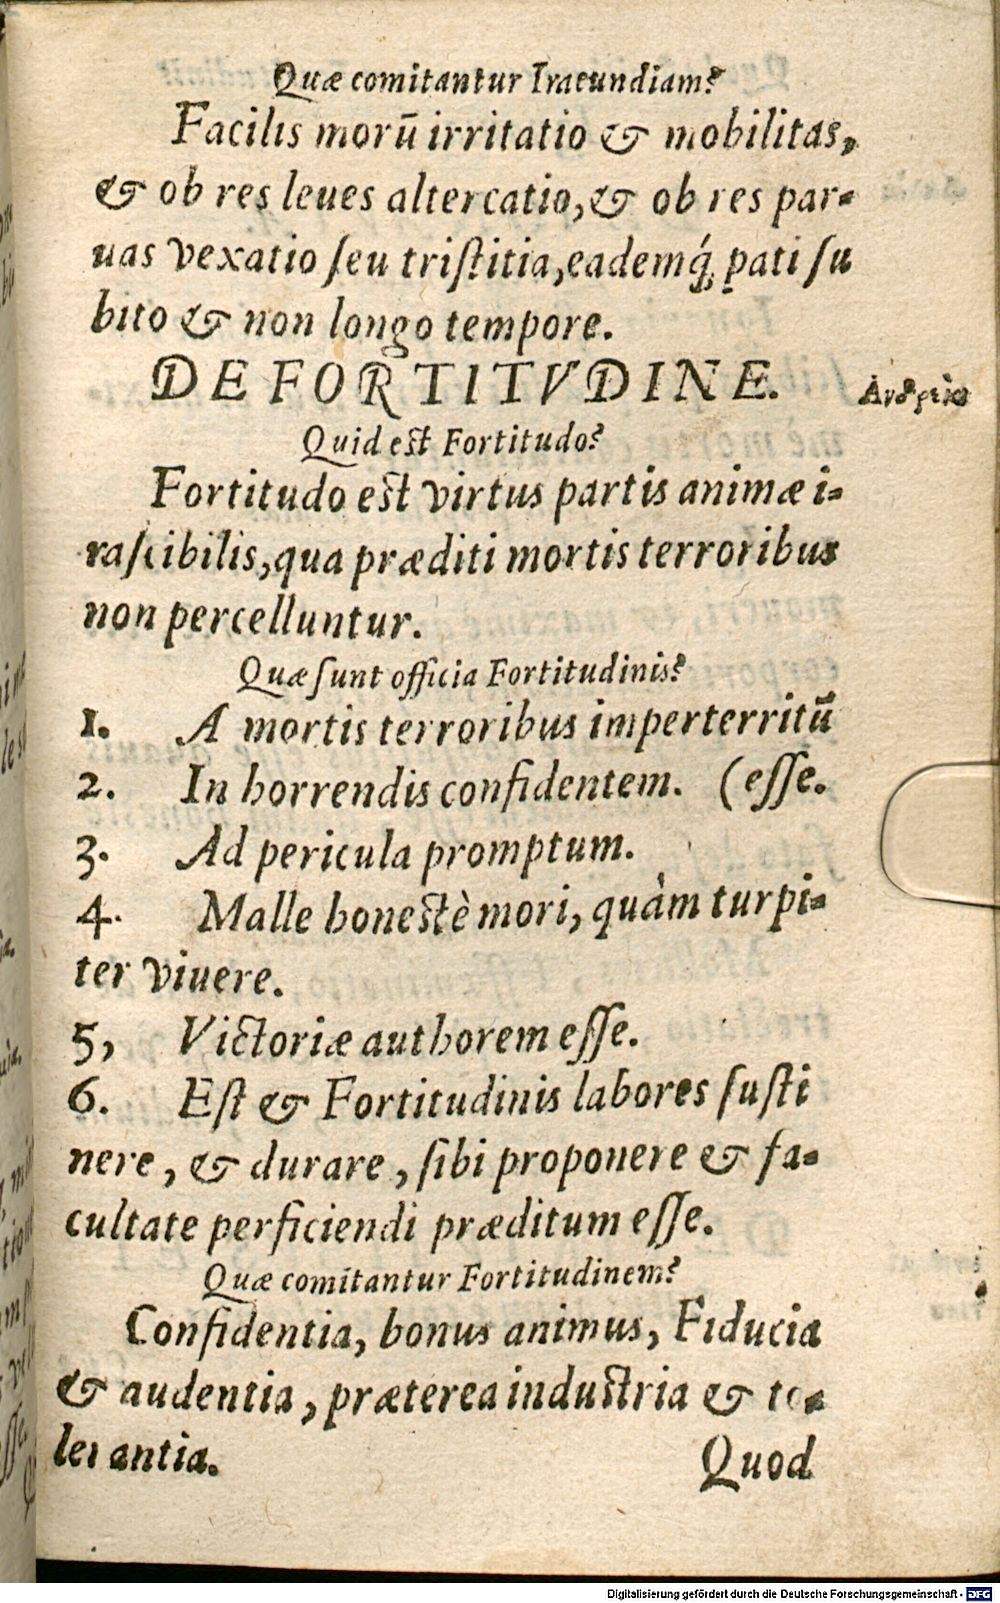 Quæ comitantur Iracundiam?
Facilis morū irritatio & mobilitas,
& ob res leues altercatio, & ob res par-
uas vexatio ſeu triſtitia, eademq́ꝫ pati ſu
bito & non longo tempore.
DE FORTITVDINE.
Quid est Fortitudo?
Fortitudo est virtus partis animæ i-
raſcibilis, qua præditi mortis terroribus
non percelluntur.
Quæ ſunt officia Fortitudinis?
1. A mortis terroribus imperterritū
2. In horrendis confidentem. (eſſe.
3. Ad pericula promptum.
4. Malle honestè mori, quàm turpi-
ter viuere.
5, Victoriæ authorem eſſe.
6. Eſt & Fortitudinis labores ſuſti
nere, & durare, ſibi proponere & fa-
cultate perficiendi præditum eſſe.
Quæ comitantur Fortitudinem?
Confidentia, bonus animus, Fiducia
& audentia, præterea industria & to-
lerantia.
Quod
Digitalisierung gefördert durch die Deutsche Forschungsgemeinschaft - DFG